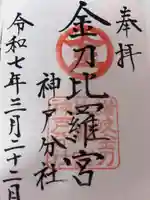 奉拝
金刀比羅宮
神戸分社
令和七年三月二十二日